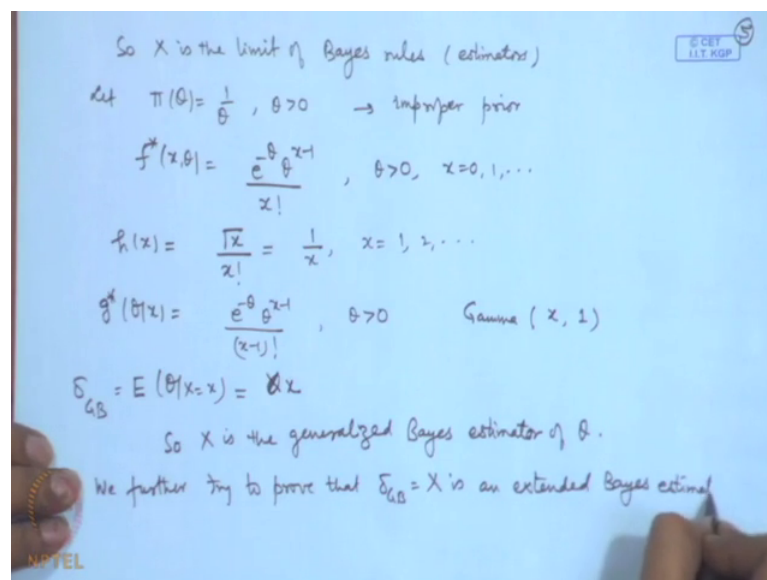 So X is the limit of Bayes rules (estimators)
© CET
I.I.T. KGP
5
Let π(θ) = 1/θ , θ>0 → improper prior
f*(x,θ) = e^{-θ} θ^{x-1} / x! , θ>0, x=0, 1, ...
h(x) = Γx / x! = 1/x, x= 1, 2, ...
g*(θ|x) = e^{-θ} θ^{x-1} / (x-1)! , θ>0 Gamma (x, 1)
δ_GB = E(θ|X=x) = x
So X is the generalized Bayes estimator of θ.
We further try to prove that δ_GB = X is an extended Bayes estimat
NPTEL